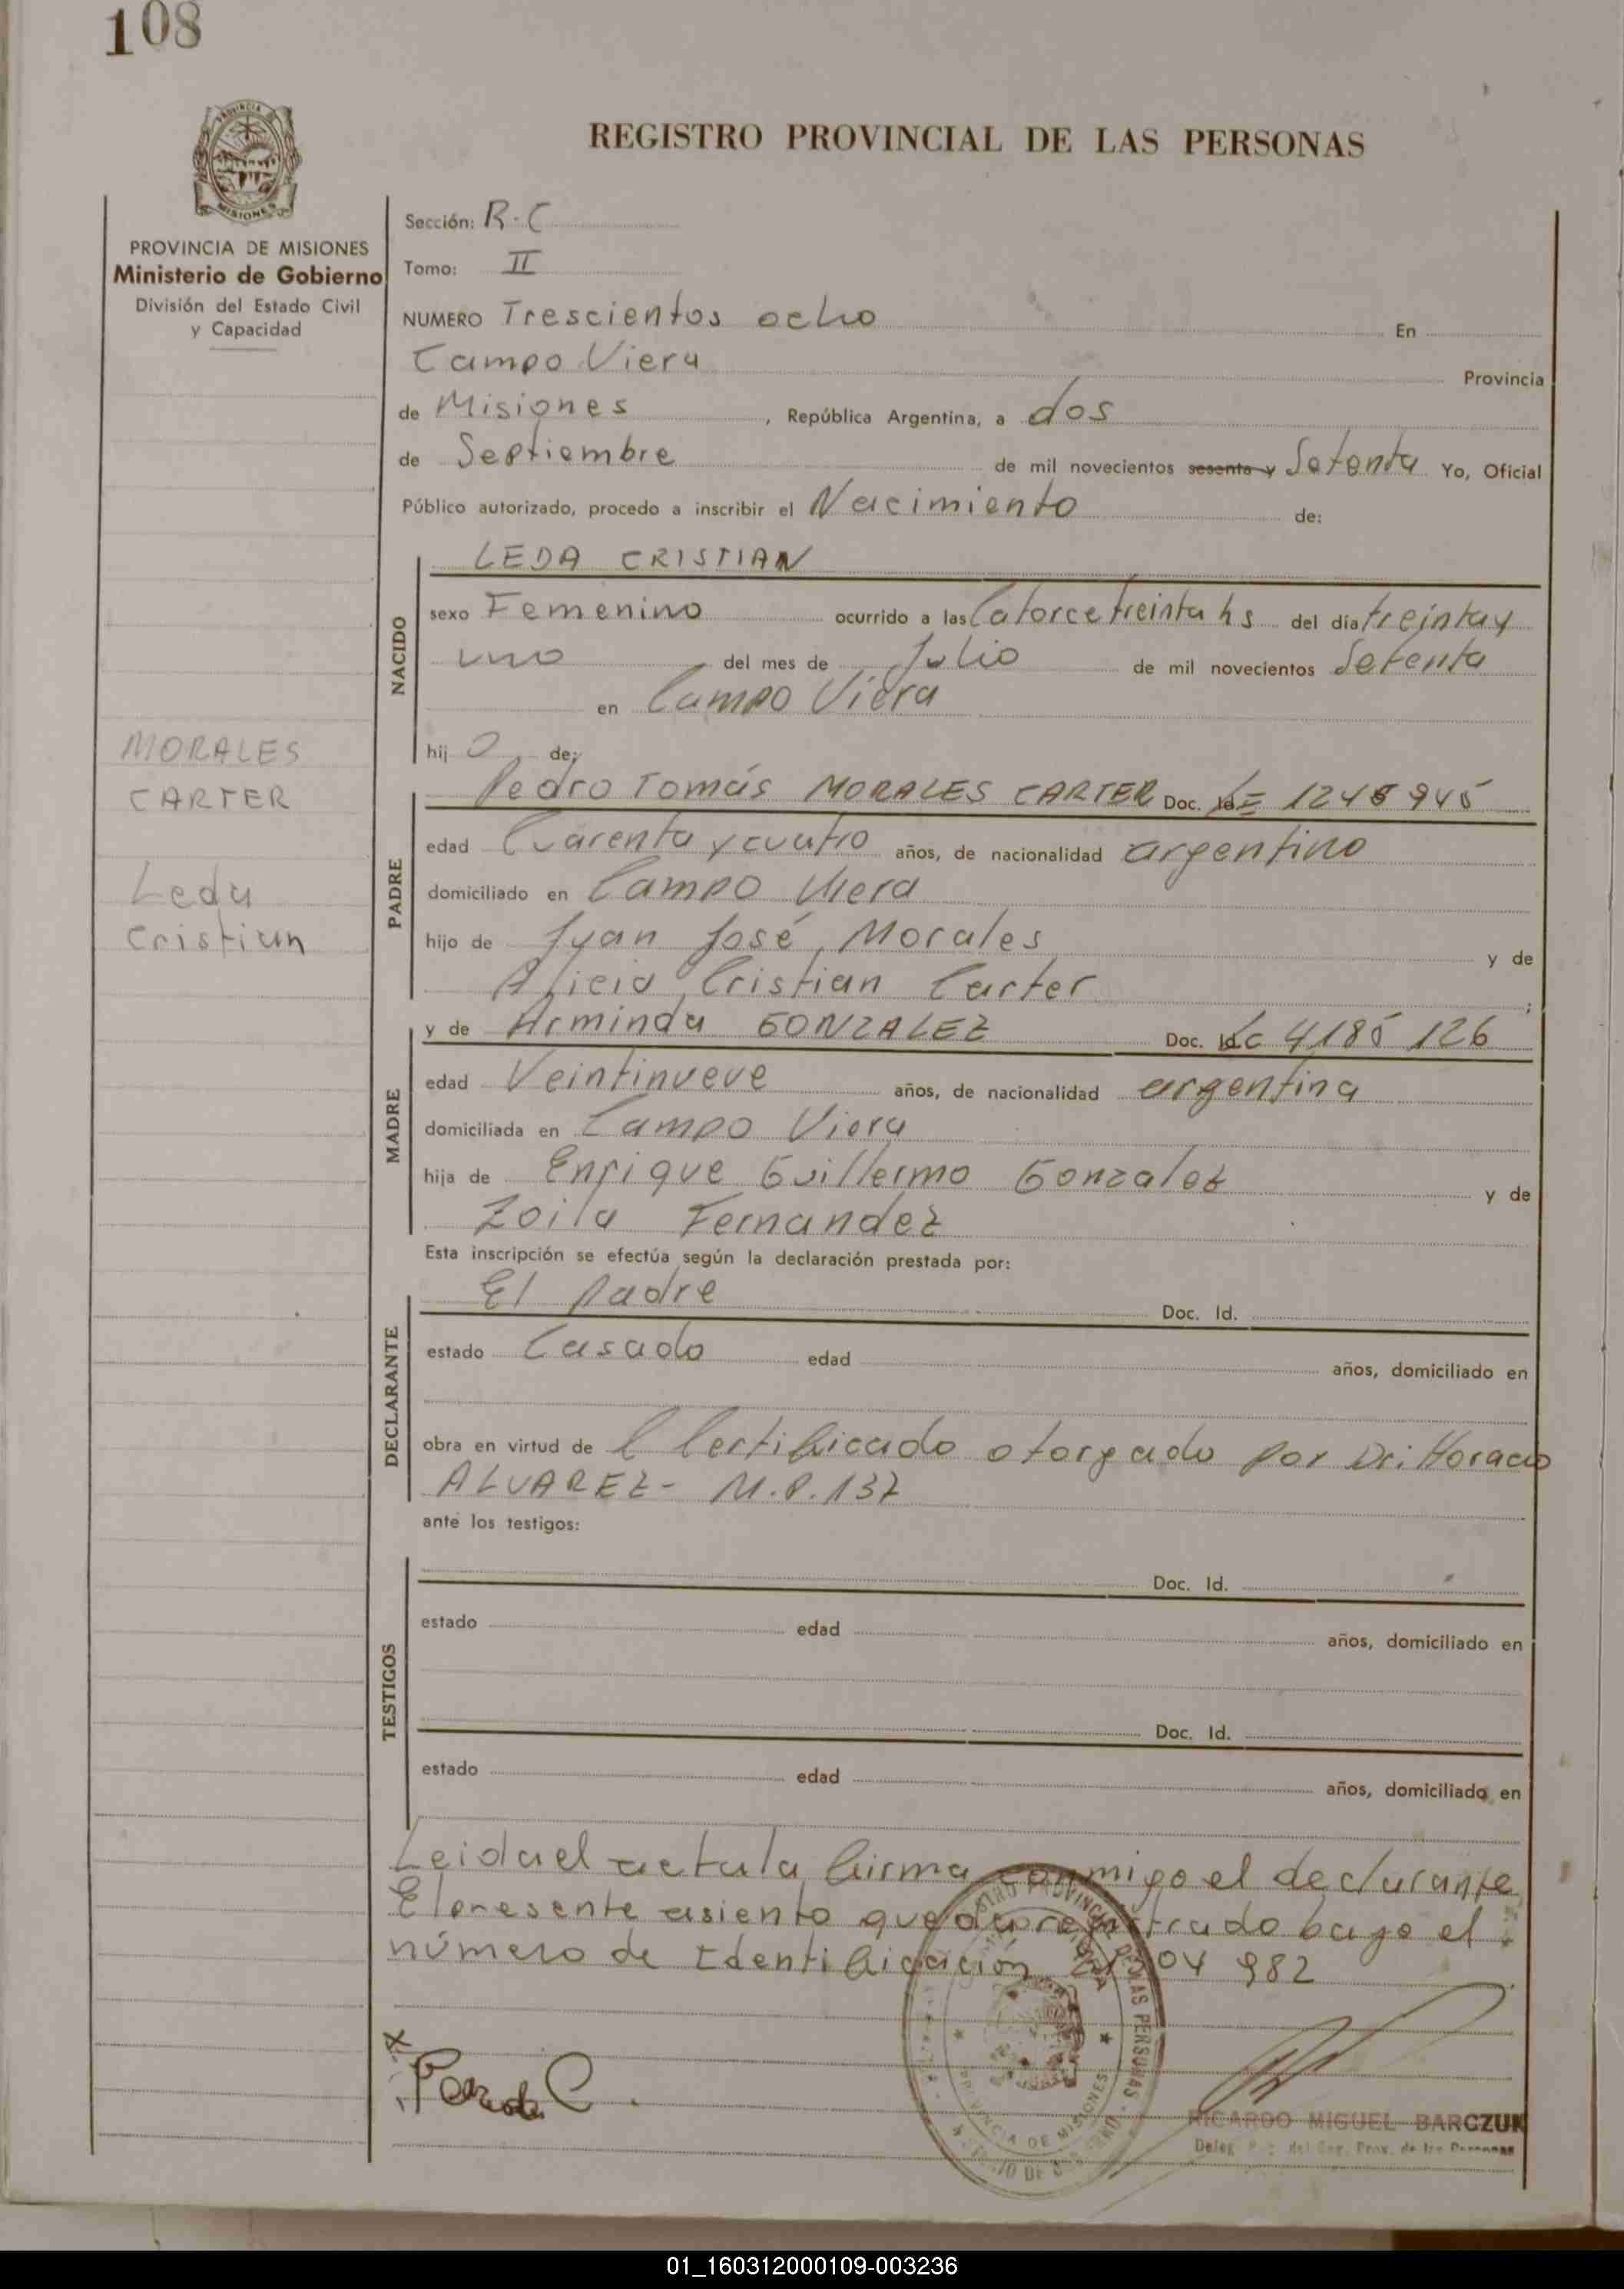 108
REGISTRO PROVINCIAL DE LAS PERSONAS
PROVINCIA DE MISIONES
Ministerio de Gobierno
División del Estado Civil
y Capacidad
MORALES
CARTER
Leda
Cristian
Sección: R.C
Tomo: II
NUMERO Trescientos ocho En
Campo Viera Provincia
de Misiones, República Argentina, a dos
de Septiembre de mil novecientos sesenta y Setenta Yo, Oficial
Público autorizado, procedo a inscribir el Nacimiento de:
NACIDO
LEDA CRISTIAN
sexo Femenino ocurrido a las Catorce treinta hs del día treinta y
uno del mes de Julio de mil novecientos Setenta
en Campo Viera
hij a de:
PADRE
Pedro Tomás MORALES CARTER Doc. LE 1248945
edad Cuarenta y cuatro años, de nacionalidad argentino
domiciliado en Campo Viera
hijo de Juan José Morales y de
Alicia Cristian Carter ;
MADRE
y de Arminda GONZALEZ Doc. Id. LC 4185 126
edad Veintinueve años, de nacionalidad argentina
domiciliada en Campo Viera
hija de Enrique Guillermo Gonzalez y de
Zoila Fernandez
Esta inscripción se efectúa según la declaración prestada por:
DECLARANTE
El padre Doc. Id.
estado Casado edad años, domiciliado en
obra en virtud de l Certificado otorgado por Dr. Horacio
ALVAREZ - M.P.137
ante los testigos:
TESTIGOS
Doc. Id.
estado edad años, domiciliado en
Doc. Id.
estado edad años, domiciliado en
Leida el acta la firma conmigo el declarante
El presente asiento queda registrado bajo el
número de Identificación 04 982
RICARDO MIGUEL BARCZUK
Deleg. del Reg. Prov. de las Personas
PROVINCIA DE MISIONES
01_160312000109-003236